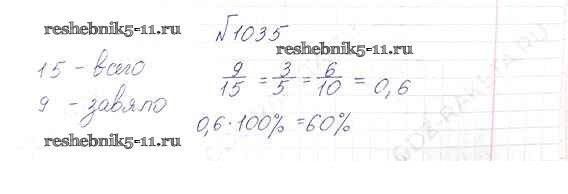 reshebnik5-11.ru
№1035
reshebnik5-11.ru
15 - всего
9/15 = 3/5 = 6/10 = 0,6
9 - завяло
0,6 · 100% = 60%
reshebnik5-11.ru
GDZ-RAKETA.RU